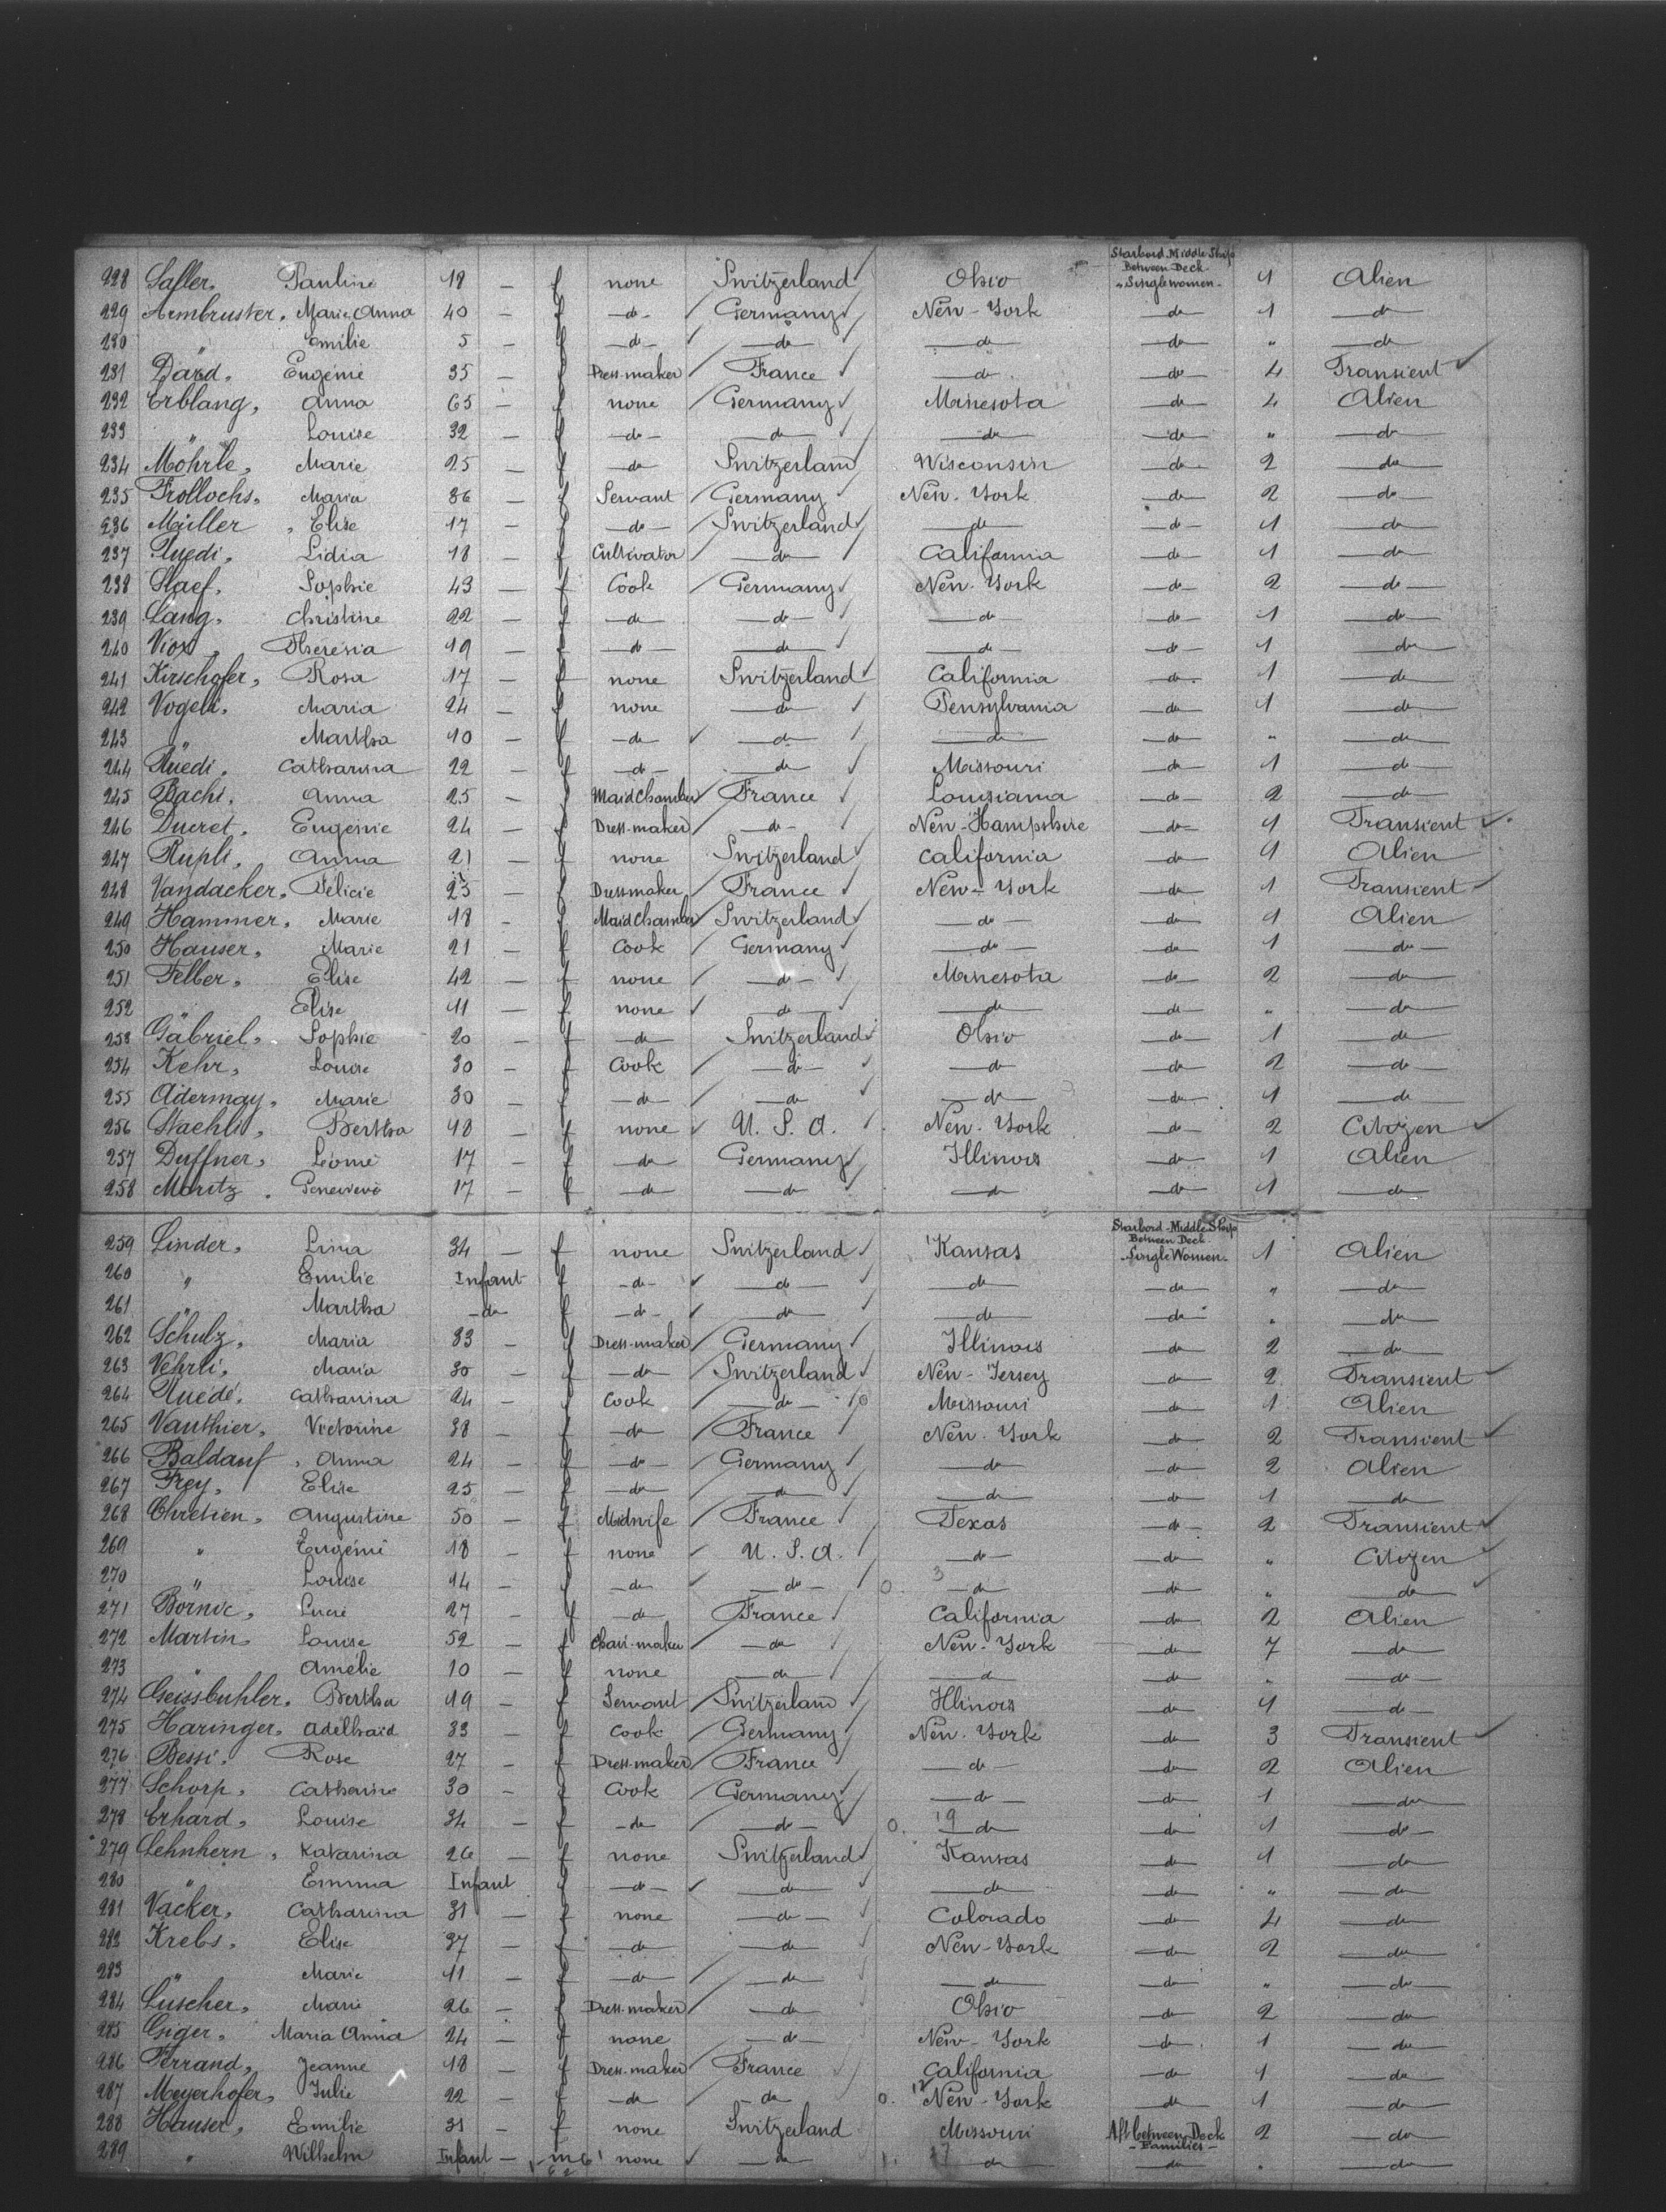 228 Saller, Pauline 18 — f none Switzerland Ohio Starbord Middle Ship Between Deck "Single women- 1 Alien
229 Armbruster, Marie Anna 40 — f -do- Germany New-York -do- 1 -do-
230 " Emilie 5 — f -do- -do- -do- -do- " -do-
231 Dard, Eugénie 35 — f Dress-maker France -do- -do- 4 Transient
232 Erblang, Anna 65 — f none Germany Minesota -do- 4 Alien
233 " Louise 32 — f -do- -do- -do- -do- " -do-
234 Möhrle, Marie 25 — f -do- Switzerland Wisconsin -do- 2 -do-
235 Frollochs, Maria 36 — f Servant Germany New-York -do- 2 -do-
236 Müller, Elise 17 — f -do- Switzerland -do- -do- 1 -do-
237 Ruedi, Lidia 18 — f Cultivator -do- California -do- 1 -do-
238 Staef, Sophie 43 — f Cook Germany New-York -do- 2 -do-
239 Lang, Christine 22 — f -do- -do- -do- -do- 1 -do-
240 Viox, Theresia 19 — f -do- -do- -do- -do- 1 -do-
241 Kirschofer, Rosa 17 — f none Switzerland California -do- 1 -do-
242 Vogeli, Maria 24 — f none -do- Pensylvania -do- 1 -do-
243 " Martha 10 — f -do- -do- -do- -do- " -do-
244 Rüedi, Catharina 22 — f -do- -do- Missouri -do- 1 -do-
245 Bachi, Anna 25 — f Maid Chamber France Louisiana -do- 2 -do-
246 Ducret, Eugénie 24 — f Dress-maker -do- New-Hampshire -do- 1 Transient
247 Rupli, Anna 21 — f none Switzerland California -do- 1 Alien
248 Vandacker, Félicie 25 — f Dressmaker France New-York -do- 1 Transient
249 Hammer, Marie 18 — f Maid Chamber Switzerland -do- -do- 1 Alien
250 Hauser, Marie 21 — f Cook Germany -do- -do- 1 -do-
251 Felber, Elise 42 — f none -do- Minesota -do- 2 -do-
252 " Elise 11 — f none -do- -do- -do- " -do-
253 Gabriel, Sophie 20 — f -do- Switzerland Ohio -do- 1 -do-
254 Kehr, Louise 30 — f Cook -do- -do- -do- 2 -do-
255 Adermay, Marie 30 — f -do- -do- -do- -do- 1 -do-
256 Staehli, Bertha 18 — f none U. S. A. New-York -do- 2 Citizen
257 Duffner, Léonie 17 — f -do- Germany Illinois -do- 1 Alien
258 Moritz, Genevieve 17 — f -do- -do- -do- -do- 1 -do-
259 Linder, Lina 34 — f none Switzerland Kansas Starbord-Middle Ship Between Deck -Single Women- 1 Alien
260 " Emilie Infant f -do- -do- -do- -do- " -do-
261 " Martha -do- f -do- -do- -do- -do- " -do-
262 Schulz, Maria 33 — f Dress-maker Germany Illinois -do- 2 -do-
263 Vehrli, Maria 30 — f -do- Switzerland New-Jersey -do- 2 Transient
264 Ruedé, Catharina 24 — f Cook -do- Missouri -do- 1 Alien
265 Vauthier, Victorine 38 — f -do- France New-York -do- 2 Transient
266 Baldauf, Anna 24 — f -do- Germany -do- -do- 2 Alien
267 Frey, Elise 25 — f -do- -do- -do- -do- 1 -do-
268 Chretien, Augustine 50 — f Midwife France Texas -do- 2 Transient
269 " Eugénie 18 — f none U. S. A. -do- -do- " Citizen
270 " Louise 14 — f -do- -do- -do- -do- " -do-
271 Bornic, Lucie 27 — f -do- France California -do- 2 Alien
272 Martin, Louise 52 — f Chair-maker -do- New-York -do- 7 -do-
273 " Amélie 10 — f none -do- -do- -do- " -do-
274 Geissbuhler, Bertha 19 — f Servant Switzerland Illinois -do- 1 -do-
275 Haringer, Adelhaid 33 — f Cook Germany New-York -do- 3 Transient
276 Bessi, Rose 27 — f Dress-maker France -do- -do- 2 Alien
277 Schorp, Catherine 30 — f Cook Germany -do- -do- 1 -do-
278 Erhard, Louise 34 — f -do- -do- -do- -do- 1 -do-
279 Lehnhern, Katarina 26 — f none Switzerland Kansas -do- 1 -do-
280 " Emma Infant f -do- -do- -do- -do- " -do-
281 Vacker, Catharina 31 — f none -do- Colorado -do- 4 -do-
282 Krebs, Elise 37 — f -do- -do- New-York -do- 2 -do-
283 " Marie 11 — f -do- -do- -do- -do- " -do-
284 Luscher, Marie 26 — f Dress-maker -do- Ohio -do- 2 -do-
285 Gsiger, Maria Anna 24 — f none -do- New-York -do- 1 -do-
286 Ferrand, Jeanne 18 — f Dress-maker France California -do- 1 -do-
287 Meyerhofer, Julie 22 — f -do- -do- New-York -do- 1 -do-
288 Hauser, Emilie 31 — f none Switzerland Missouri Aft between Deck -Families- 2 -do-
289 " Wilhelm Infant — m none -do- -do- -do- " -do-